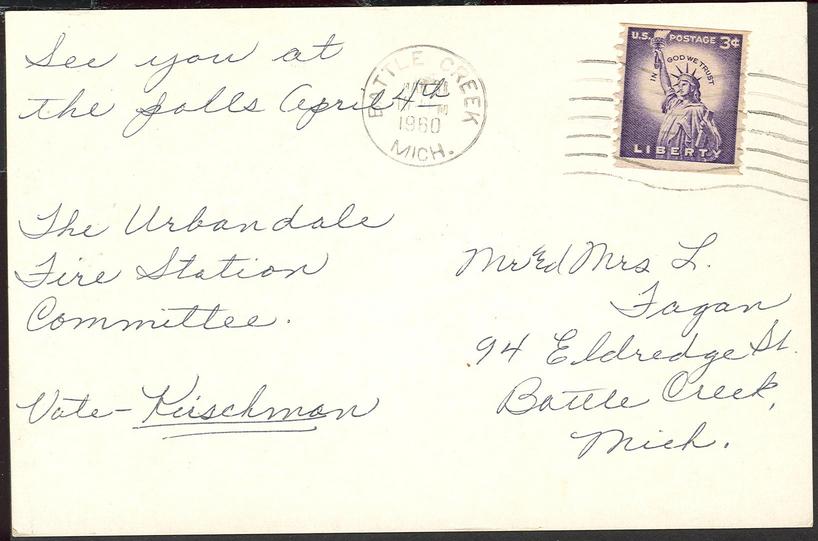 See you at
the polls April 4th
The Urbandale
Fire Station
Committee.
Vote - Kirschman
BATTLE CREEK
1960
MICH.
U.S. POSTAGE 3¢
IN GOD WE TRUST
LIBERTY
Mr & Mrs L.
Fagan
94 Eldredge St.
Battle Creek,
Mich.